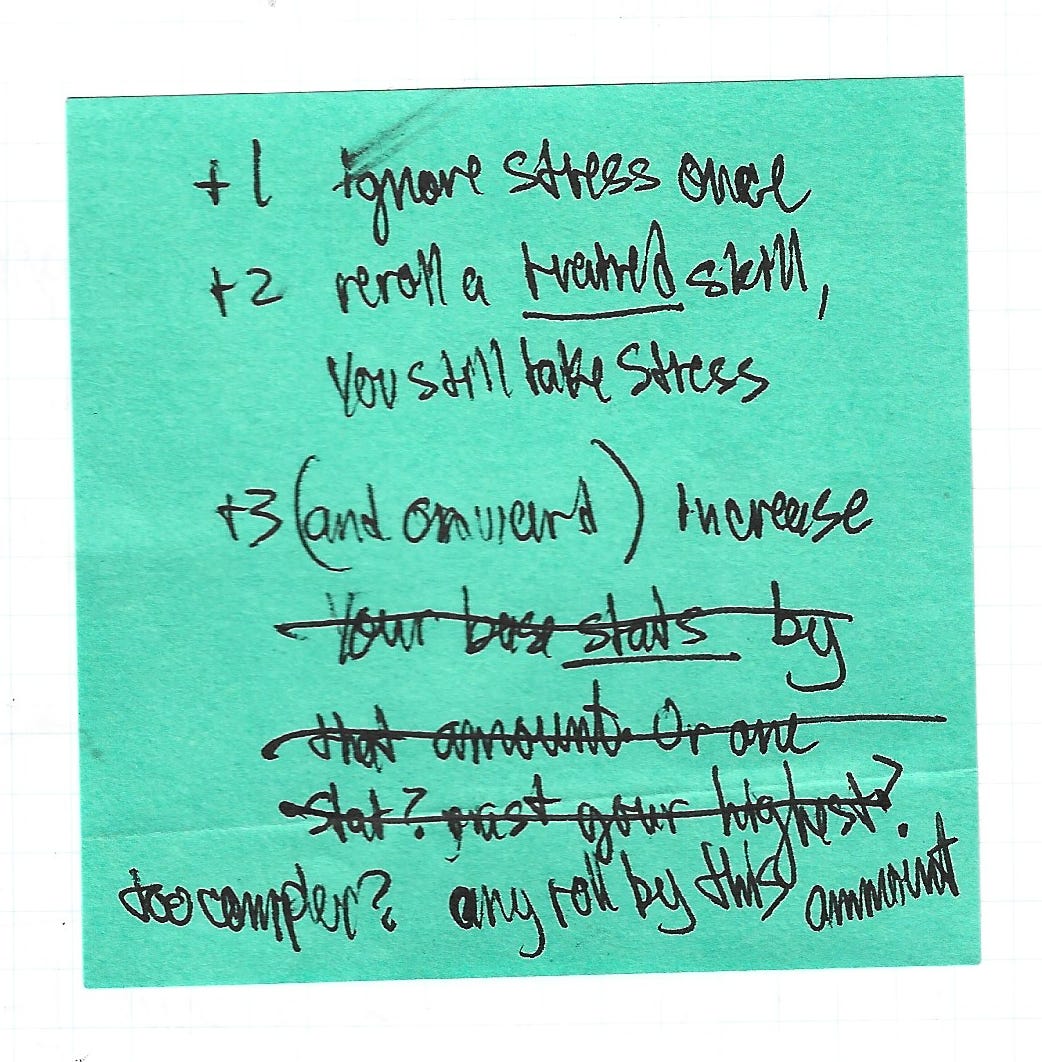 +1 ignore stress once
+2 reroll a trained skill,
You still take stress
+3 (and onward) increase
Your base stats by
that amount. Or one
stat? past your highest?
too complex? any roll by this ammount